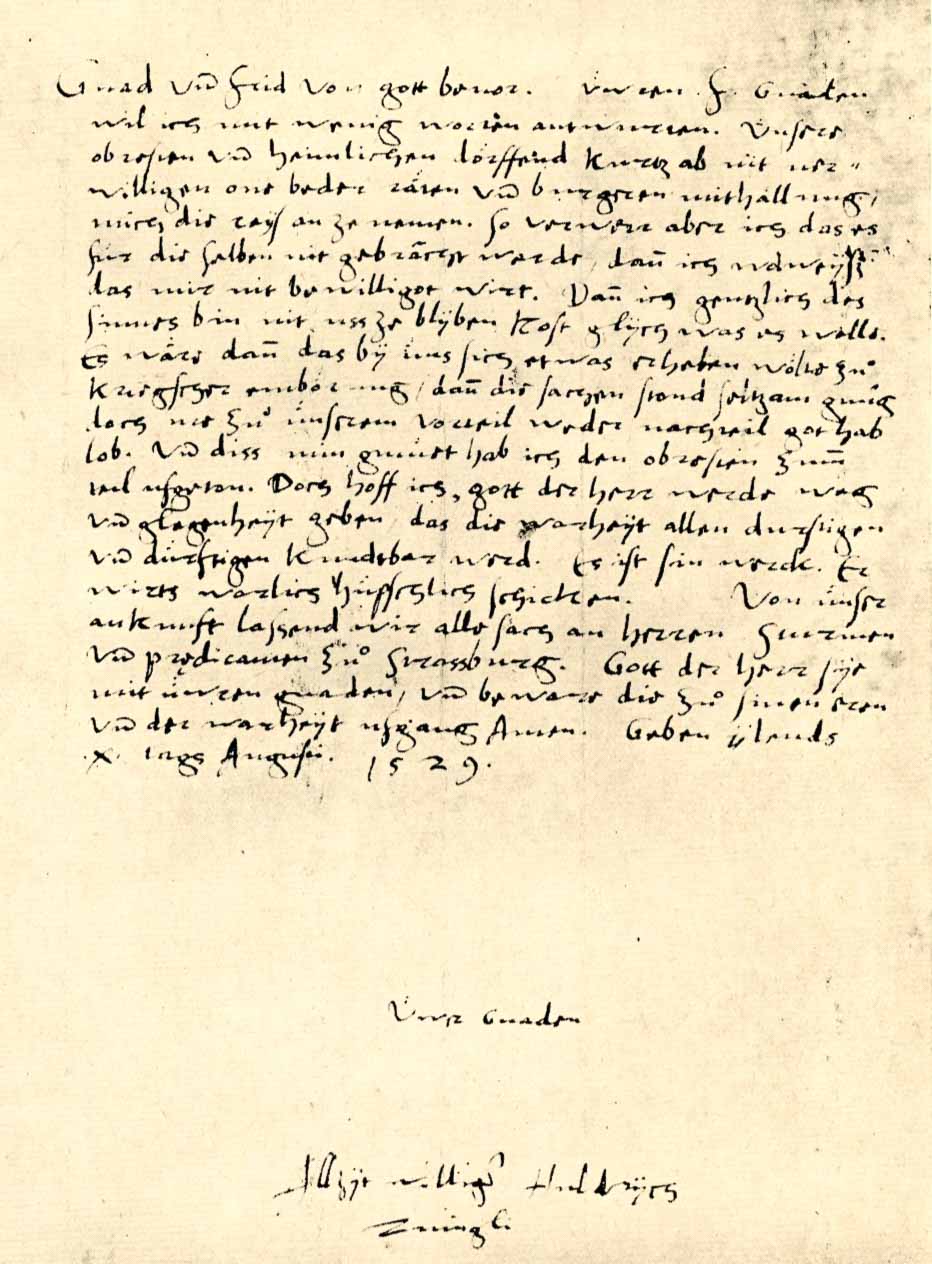 Gnad vn̄ frid von gott bevor. Üwren f. Gnaden
wil ich mit wenig worten antwurten. Unsere
obresten vn̄ heimlichen dörffend kurtz ab nit ver-
willigen one beder räten vn̄ burgeren mithällung,
mich die reyß an ze nemen. so verwerr aber ich das es
für die selben nit gebrächt werde, dan̄ ich
das mir nit bewilligot wirt. Dan̄ ich gentzlich des
sinnes bin nit uss ze blyben kost glych was es welle.
Es wäre dan̄ das bÿ uns sich etwas erheben wölte zů
kriegscher embörung, dan̄ die sachen stond seltzam gnůg
doch me zů ünserem vorteil weder nachteil got hab
lob. Vn̄ diss min gmüet hab ich den obresten zum̄
teil ufgeton. Doch hoff ich, gott der herr werde weg
vn̄ glegenheÿt geben das die warheÿt allen durstigen
vn̄ dürftigen kundtbar werd. Es ist sin werck. Er
wirts warlich hüpschlich schicken. Von ünser
ankunft lassend wir alle sach an herren Sturmen
vn̄ prędicanten zů Strassburg. Gott der herr sÿe
mit üwren gnaden, vn̄ beware die zů sinen eren
vn̄ der warheÿt ufgang Amen. Geben ÿlends
.x. tags Augusti. 1529.
Üwer Gnaden
Allzÿt williger Huldrÿch
Zuingli